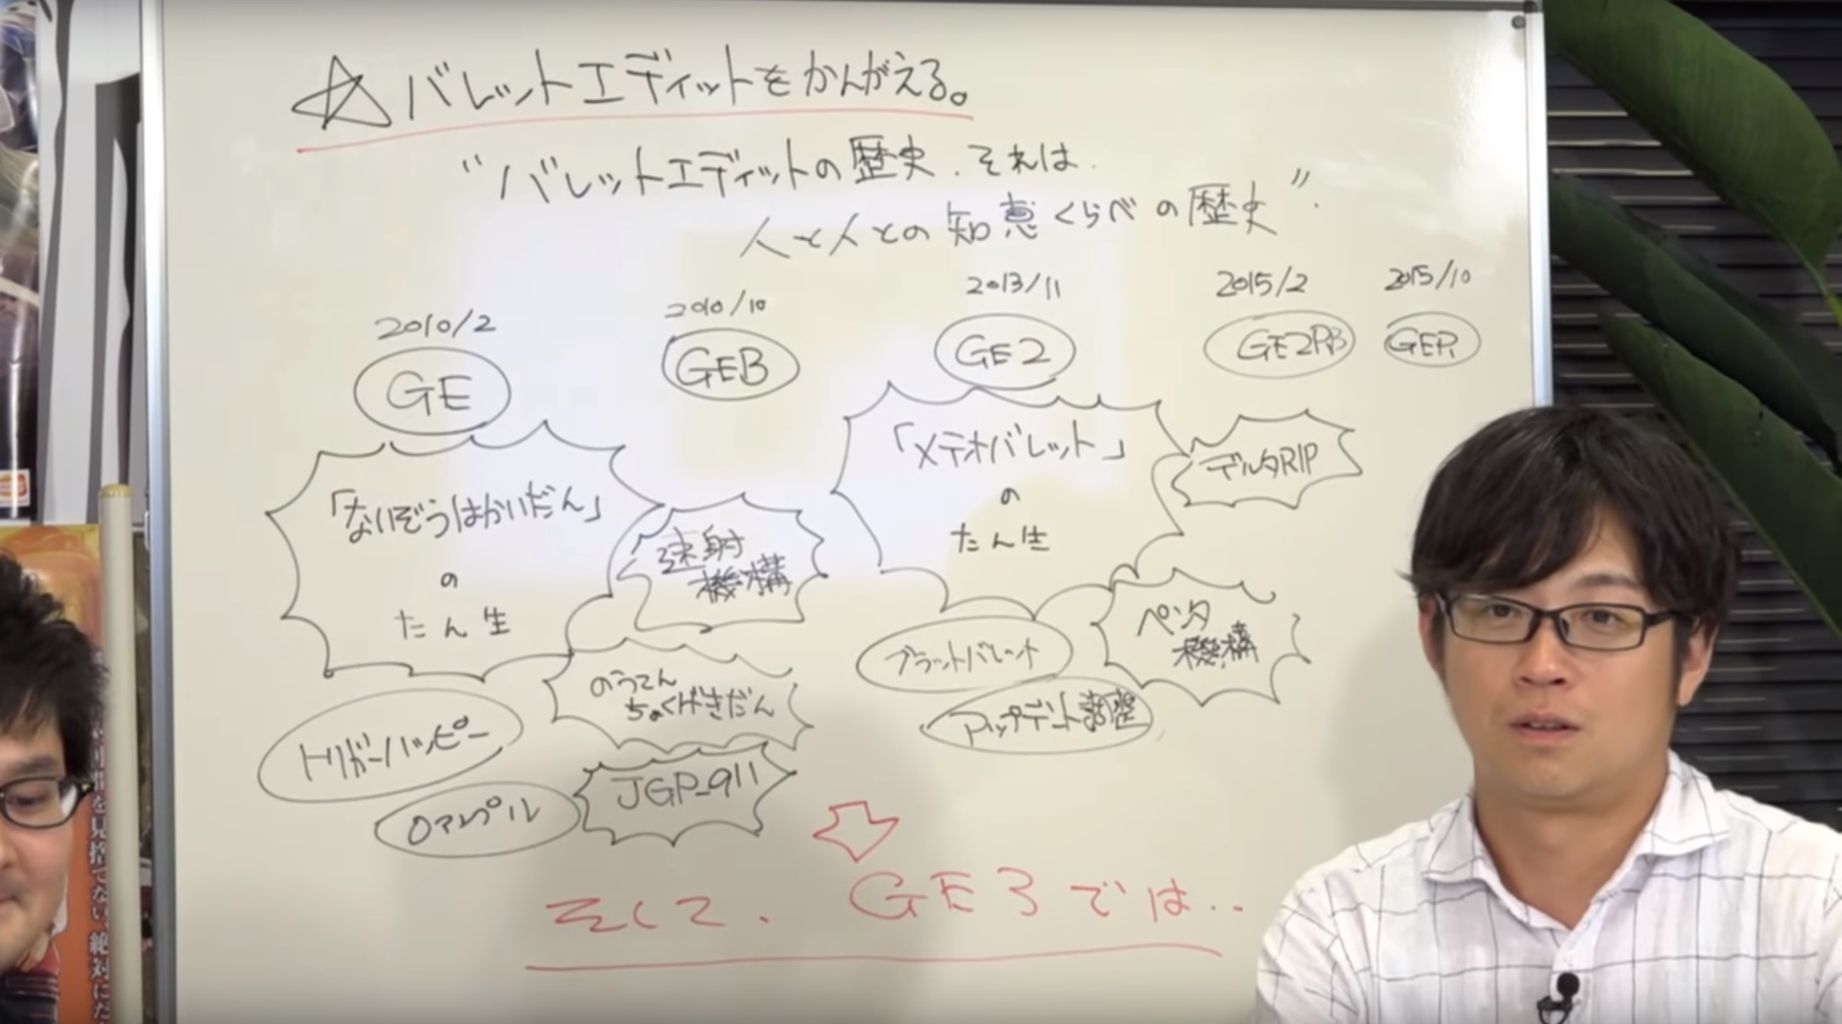 ☆バレットエディットをかんがえる。
“バレットエディットの歴史．それは．
人と人との知恵くらべの歴史”．
2010/2
GE
2010/10
GEB
2013/11
GE2
2015/2
GE2RB
2015/10
GER
「ないぞうはかいだん」
の
たん生
速射
機構
のうてん
ちょくげきだん
トリガーハッピー
Oアンプル
JGP_911
「メテオバレット」
の
たん生
デルタRIP
ペンタ
機構
ブラッドバレット
アップデート調整
そして、GE3では..
を見捨てない、絶対にだ